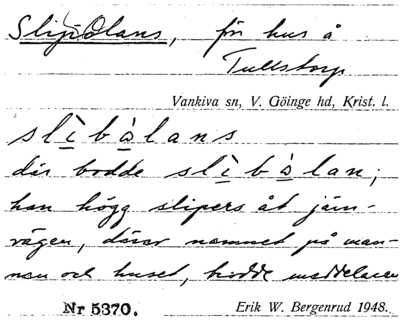 Slipolans, för hus å
Tullstorp
Vankiva sn, V. Göinge hd, Krist. l.
slìbàlans
där bodde slìbàlan;
han högg slipers åt järn-
vägen, därav namnet på man-
nen och huset, trodde meddelaren
Nr 5370. Erik W. Bergenrud 1948.